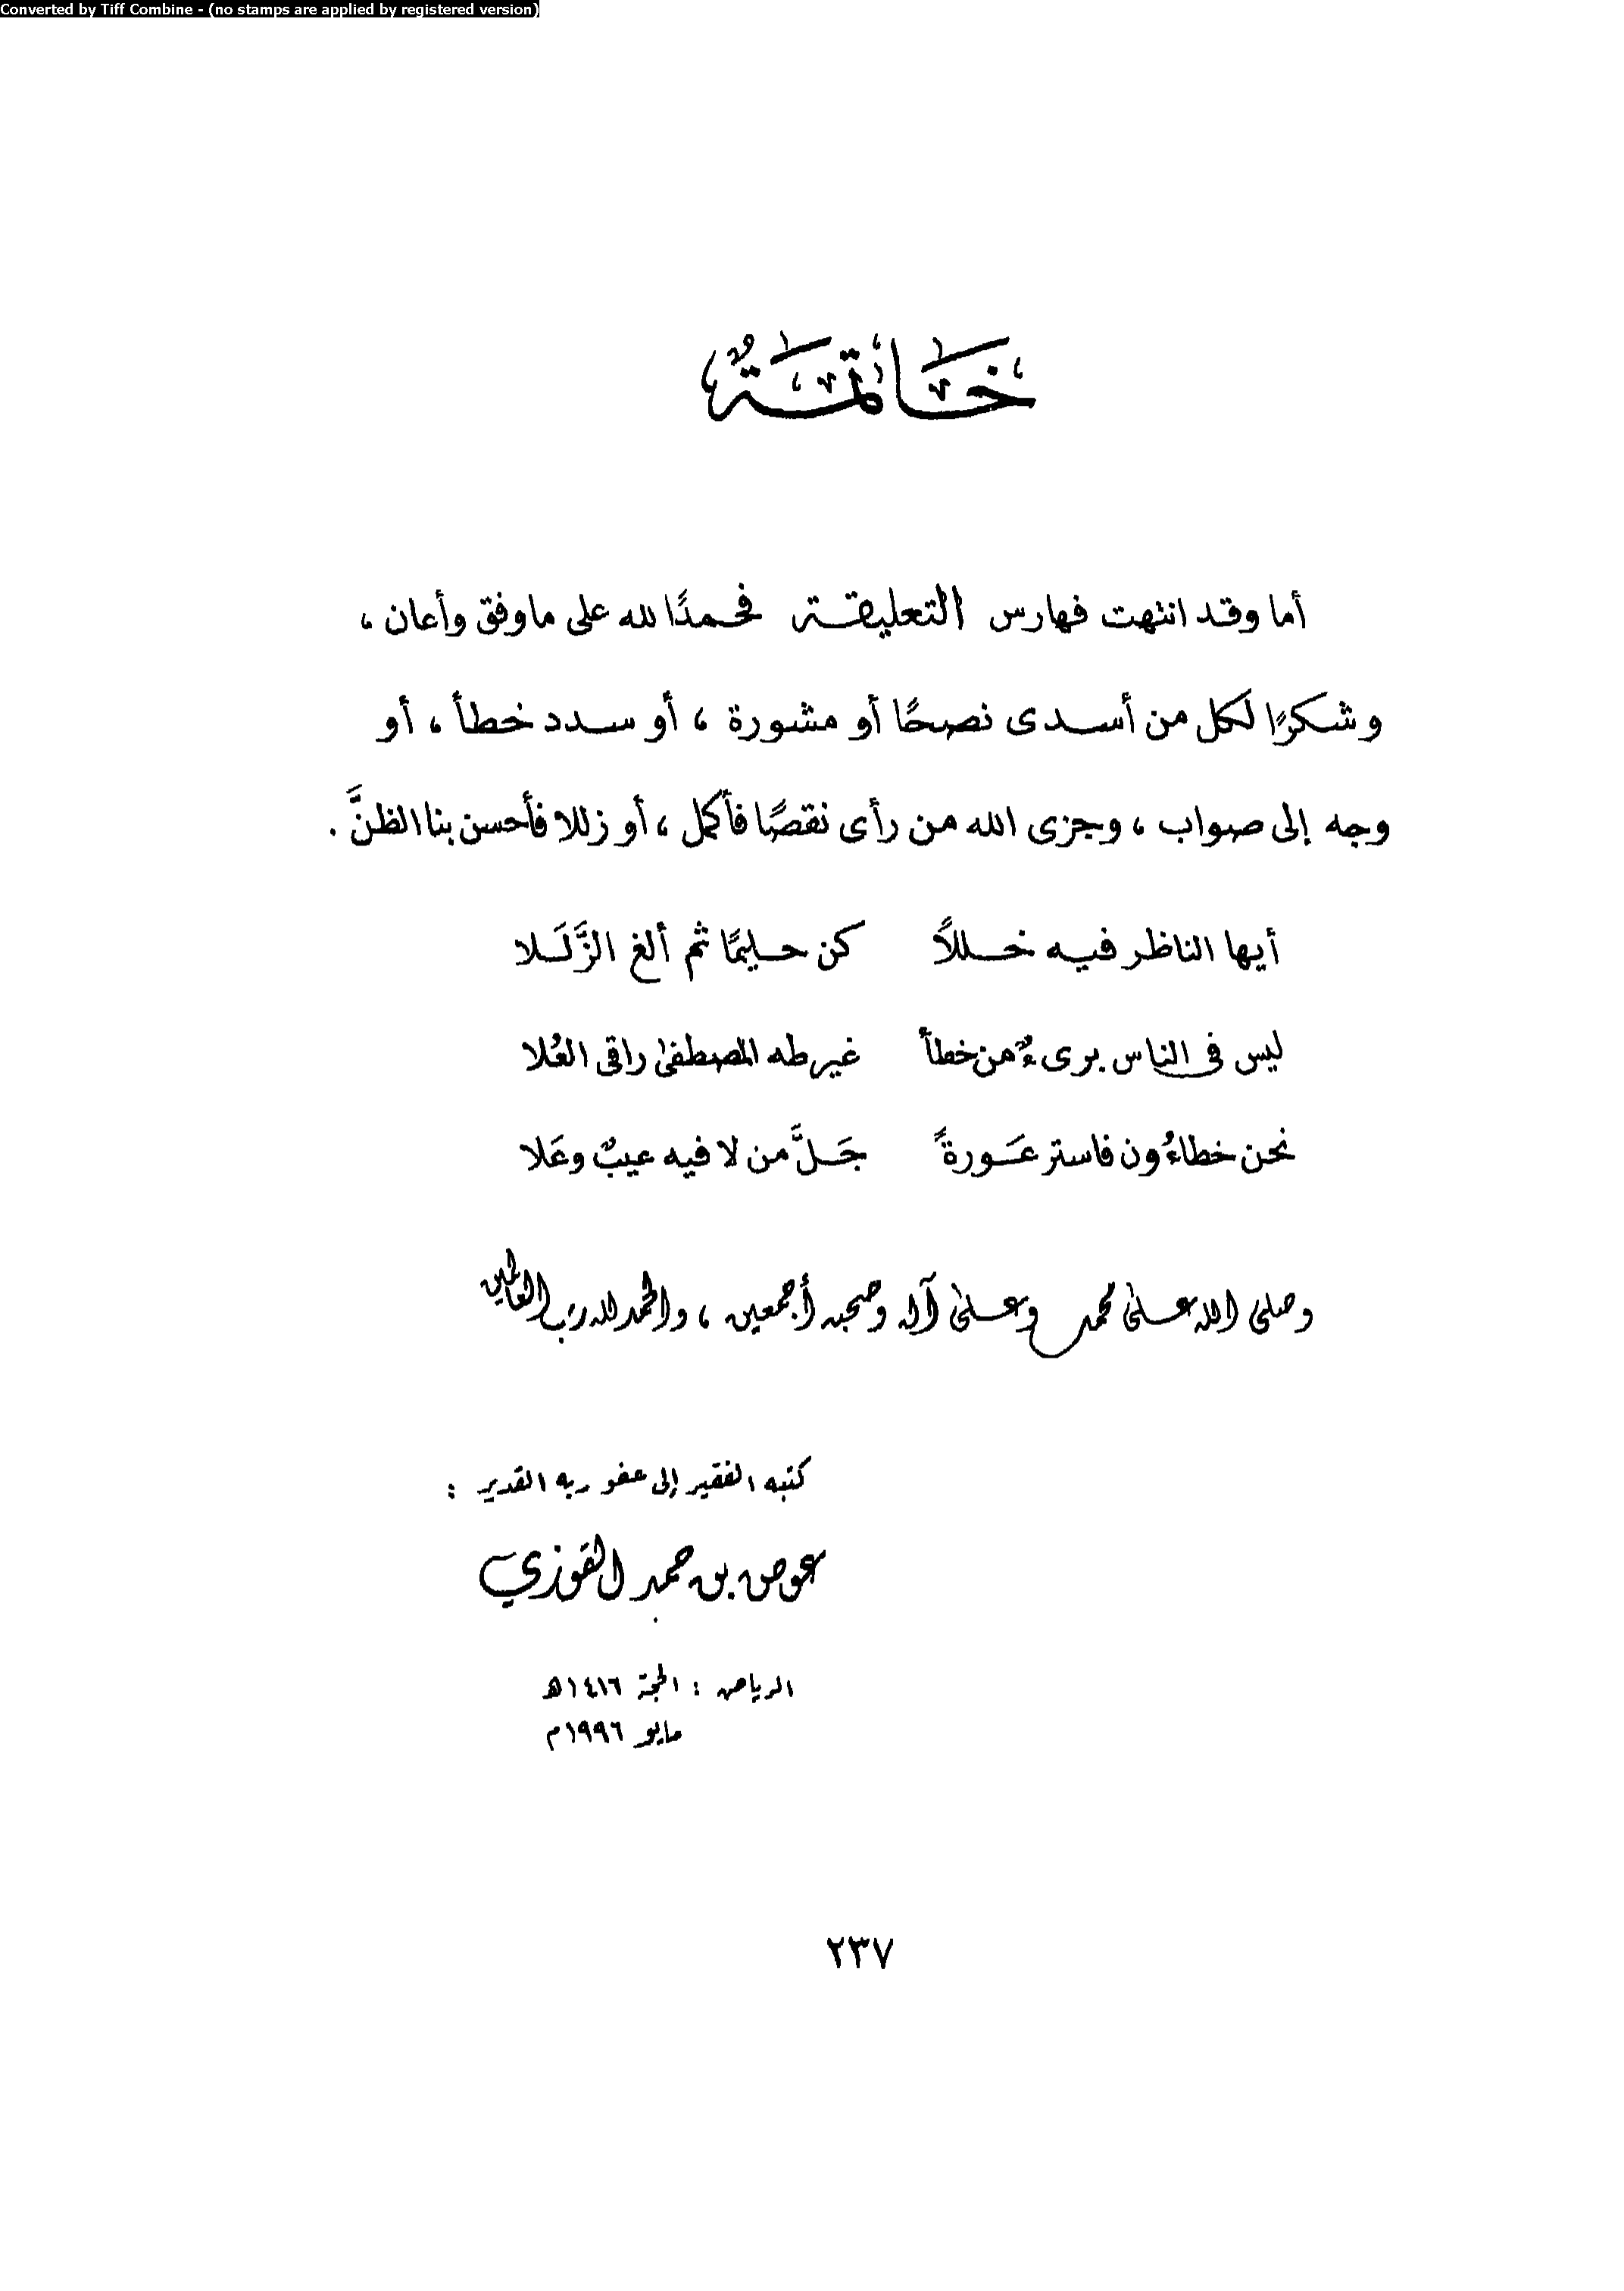 Converted by Tiff Combine - (no stamps are applied by registered version)
خَاتِمَةٌ
أما وقد انتهت فهارس التعليقة فحمدًا لله على ما وفق وأعان ،
وشكرًا لكل من أسدى نصحًا أو مشورة ، أو سدد خطأ ، أو
وجه إلى صواب ، وجزى الله من رأى نقصًا فأكمل ، أو زللا فأحسن بنا الظنَّ .
أيها الناظر فيه خللاً كن حليمًا ثم ألغ الزَّلَلا
ليس في الناس برىءٌ من خطأ غير طه المصطفىٰ راقى العُلا
نحن خطاءُون فاستر عَورةً جَلَّ من لا فيه عيبٌ وعَلا
وصلى الله علىٰ محمد وعلىٰ آله وصحبه أجمعين ، والحمد لله رب العالمين
كتبه الفقير إلى عفو ربه القدير :
عوض بن حمد القوزي
الرياض : الحجة ١٤١٦هـ
مايو ١٩٩٦م
٢٣٧